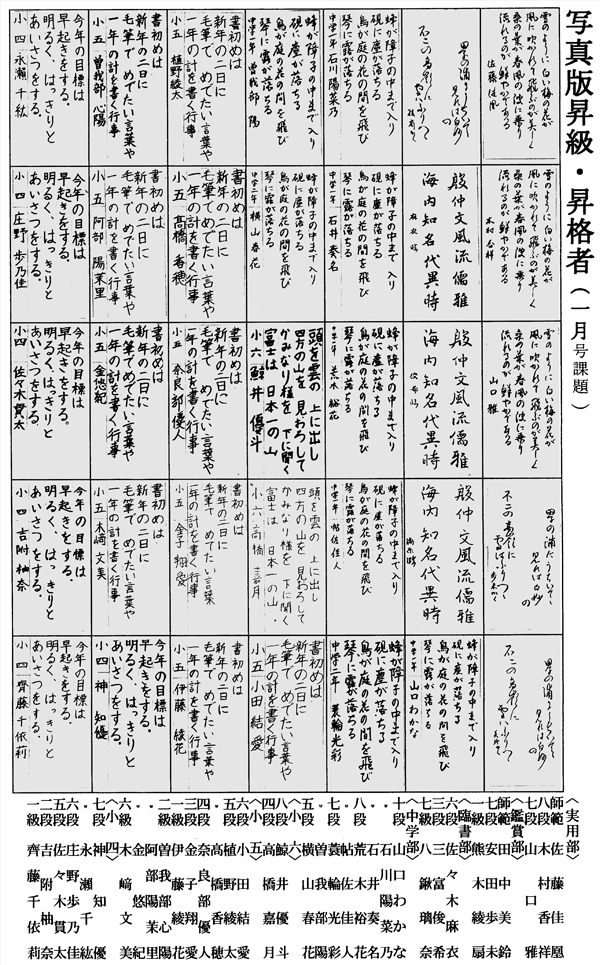 写真版昇級・昇格者（一月号課題）
雪のように白い梅の花が
風に吹かれて飛ぶのが美しく
桑の葉が春風の波に乗り
流れるのが鮮やかである
佐藤佳凰
蜂が障子の中まで入り
硯に塵が落ちる
鳥が庭の花の間を飛び
琴に露が落ちる
中学一年 石川陽菜乃
蜂が障子の中まで入り
硯に塵が落ちる
鳥が庭の花の間を飛び
琴に露が落ちる
中学一年 曽我部 陽
書初めは
新年の二日に
毛筆で めでたい言葉や
一年の計を書く行事
小五 植野綾太
書初めは
新年の二日に
毛筆で めでたい言葉や
一年の計を書く行事
小五 曽我部 心陽
今年の目標は
早起きをする。
明るく、はっきりと
あいさつをする。
小四 永瀬 千紘
雪のように白い梅の花が
風に吹かれて飛ぶのが美しく
桑の葉が春風の波に乗り
流れるのが鮮やかである
木村香祥
殷仲文風流儒雅
海内知名代異時
蜂が障子の中まで入り
硯に塵が落ちる
鳥が庭の花の間を飛び
琴に露が落ちる
中学一年 石井奏名
蜂が障子の中まで入り
硯に塵が落ちる
鳥が庭の花の間を飛び
琴に露が落ちる
中学二年 横山春花
書初めは
新年の二日に
毛筆で めでたい言葉や
一年の計を書く行事
小五 髙橋 香穂
書初めは
新年の二日に
毛筆で めでたい言葉や
一年の計を書く行事
小五 阿部 陽茉里
今年の目標は
早起きをする。
明るく、はっきりと
あいさつをする。
小四 庄野 歩乃佳
雪のように白い梅の花が
風に吹かれて飛ぶのが美しく
桑の葉が春風の波に乗り
流れるのが鮮やかである
山口 雅
殷仲文風流儒雅
海内知名代異時
蜂が障子の中まで入り
硯に塵が落ちる
鳥が庭の花の間を飛び
琴に露が落ちる
荒木 裕花
頭を雲の 上に出し
四方の山を 見おろして
かみなり様を 下に聞く
富士は 日本一の山
小六 鯨井 優斗
書初めは
新年の二日に
毛筆で めでたい言葉や
一年の計を書く行事
小五 奈良部優人
書初めは
新年の二日に
毛筆で めでたい言葉や
一年の計を書く行事
小五 金悠妃
今年の目標は
早起きをする。
明るく、はっきりと
あいさつをする。
小四 佐々木貫太
殷仲文風流儒雅
海内知名代異時
蜂が障子の中まで入り
硯に塵が落ちる
鳥が庭の花の間を飛び
琴に露が落ちる
帖佐佳人
頭を雲の 上に出し
四方の山を 見おろして
かみなり様を 下に聞く
富士は 日本一の山
小六 高橋 嘉月
書初めは
新年の二日に
毛筆で めでたい言葉
一年の計を書く行事
小五 金子 翔愛
書初めは
新年の二日に
毛筆で めでたい言葉や
一年の計を書く行事
小五 木﨑 文美
今年の目標は
早起きをする。
明るく、はっきりと
あいさつをする。
小四 吉附 柚奈
蜂が障子の中まで入り
硯に塵が落ちる
鳥が庭の花の間を飛び
琴に露が落ちる
中学三年 山口わかな
蜂が障子の中まで入り
硯に塵が落ちる
鳥が庭の花の間を飛び
琴に露が落ちる
中学二年 蓑輪光彩
書初めは
新年の二日に
毛筆で めでたい言葉や
一年の計を書く行事
小五 小田 結愛
書初めは
新年の二日に
毛筆で めでたい言葉や
一年の計を書く行事
小五 伊藤 綾花
今年の目標は
早起きをする。
明るく、はっきりと
あいさつをする。
小四 神 知優
今年の目標は
早起きをする。
明るく、はっきりと
あいさつをする。
小四 齊藤千依莉
〈実用部〉
師範 佐藤佳凰
八段 木村香祥
七段 山口雅
〈鑑賞部〉
師範 田中美鈴
七段 歩未
一級 熊木綾扇
〈臨書部〉
六段 佐々木麻衣
三段 俊希
七級 八鍬瑠奈
〈中学部〉
十段 山口わかな
〃 石川陽菜乃
〃 石井奏名
八段 荒木裕花
〃 帖佐佳人
七段 蓑輪光彩
〃 曽我部陽
五段 横山春花
〈小六〉
八段 鯨井優斗
四段 高橋嘉月
〈小五〉
六段 小田結愛
五段 植野綾太
〃 髙橋香穂
四段 奈良部優人
三段 金子翔愛
一級 伊藤綾花
二級 曽我部心陽
〃 阿部陽茉里
〃 金悠妃
六級 木﨑文美
〈小四〉
七段 神知優
〃 永瀬千紘
六段 庄野歩乃佳
五段 佐々木貫太
二段 吉附柚奈
一級 齊藤千依莉